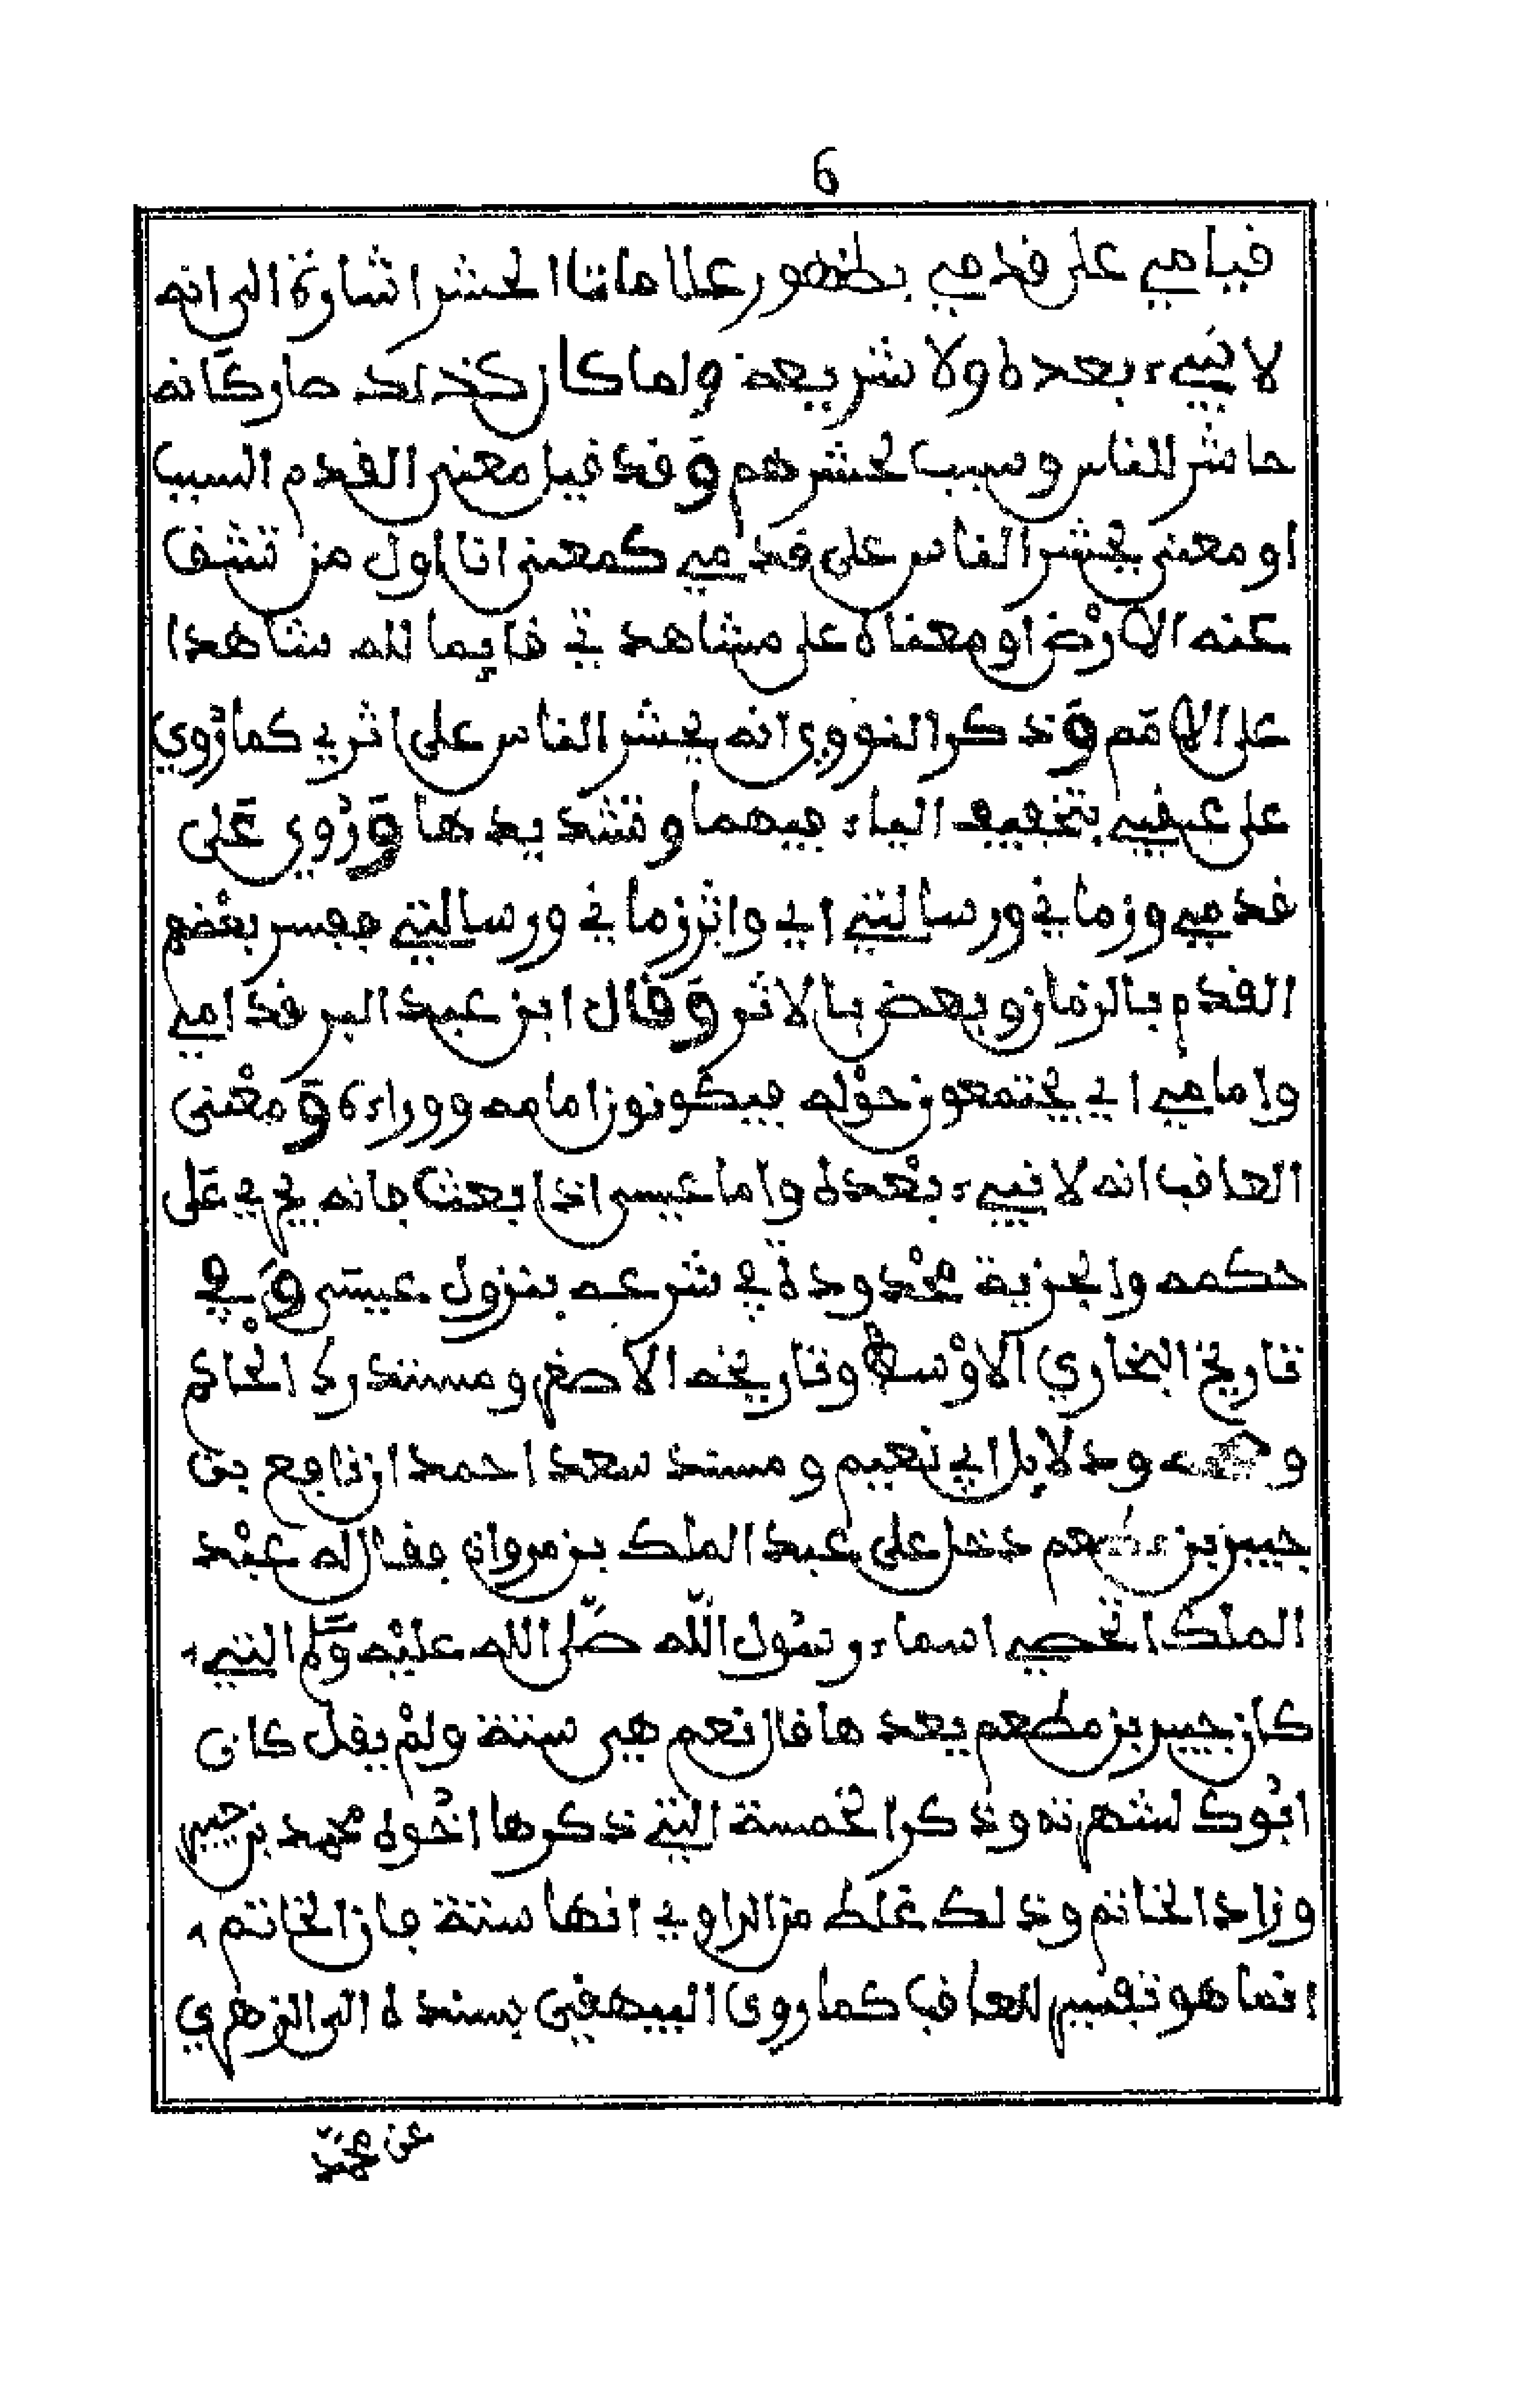 6
قيامي على قدمي بظهور علاماتا الحشر اشارة الى انه
لا نبيء بعده ولا شريعة ولما كان كذلك صار كَانه
حاشر للناس وسبب لحشرهم وَقد قيل معنى القدم السبب
او معنى يحشر الناس على قدمي كمعنى انا اول من تنشق
عنه الارْض او معناه على مشاهدتي قايما لله شاهدا
على الامَم وَذكر النووي انه يحشر الناس على اثري كما رُوي
على عقبي بتخفيف الياء فيهما وتشديدها وَرُوي عَلى
قدمي وزماني ورسالتي اي واثر زماني ورسالتي ففسر بعْضهم
القدم بالزمان وبعض بالاثر وَقال ابن عبد البر قدامي
وامامي اي يجتمعون حوْله فيكونون امامه ووراءه وَمعْنى
العاقب انه لا نبيء بعْده واما عيسى اذا بعث فانه يجري عَلى
حكمه والجزية محْدودة في شرعه بنزول عيسَى وَفي
تاريخ البخاري الاوْسط وتاريخه الاصغر ومستدرك الحاكم
ودلايل ابي نعيم ومسند سعد احمد ان نافع بن
جبير بن مطعم دخل على عبد الملك بن مروان فقال له عبْد
الملك اتحصي اسماء رسُول اللّه صَلّى الله عليْه وَسلم التي
كان جبير بن مطعم يعدها قال نعم هي ستة ولمْ يقل كان
ابُوك لشهرته وذكر الخمسة التي ذكرها اخُوه محمد بن جبير
وزاد الخاتم وذلك غلط من الراوي انها ستة فان الخاتم
انما هو تفسير للعاقب كما روى البيهقي بسنده الى الزهري
عن محمد